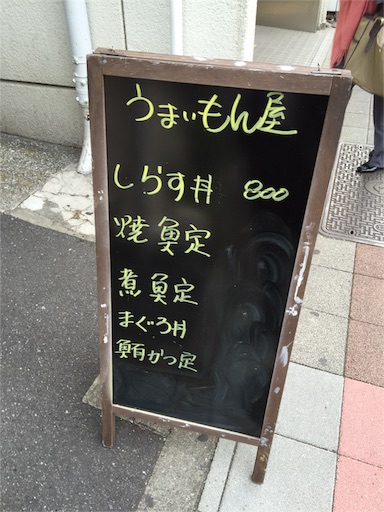 うまいもん屋
しらす丼 800
焼魚定
煮魚定
まぐろ丼
鮪かつ定